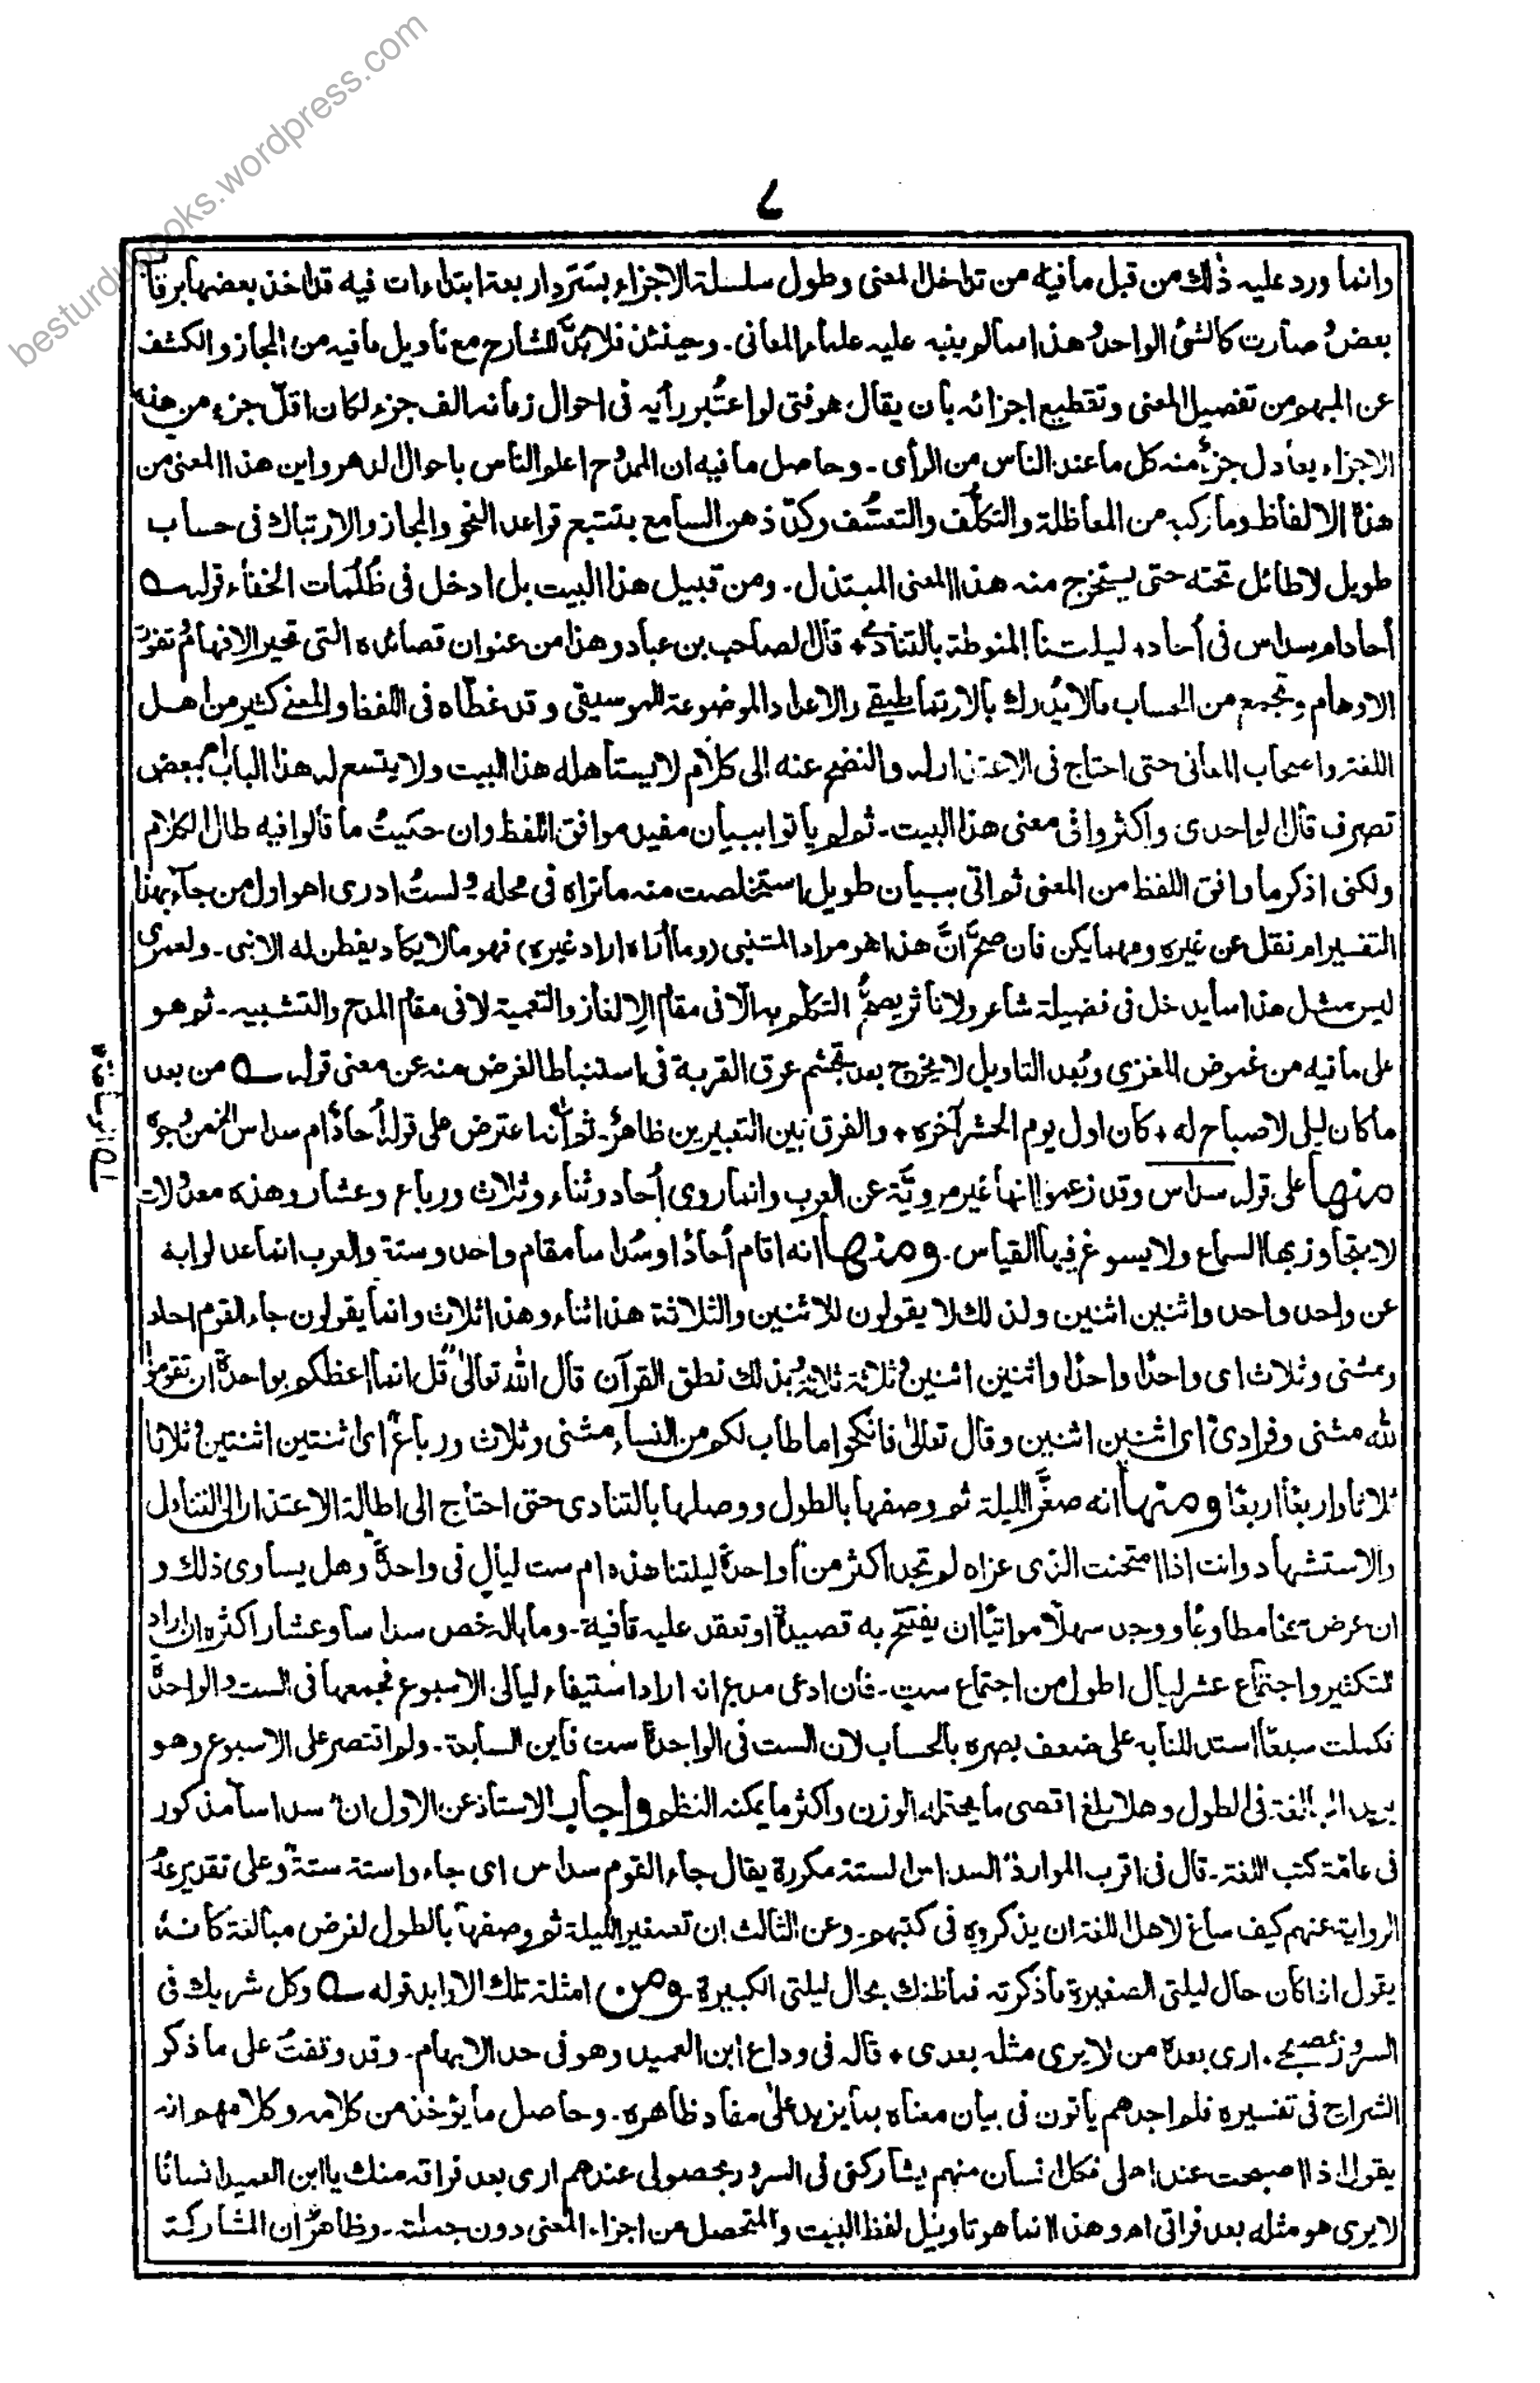 besturdubooks.wordpress.com
وانما ورد عليه ذلك من قبل مافيه من تداخل المعنى وطول سلسلة الاجزاء بتسترد اربعة ابتداءات فيه قد اخذ بعضها برقاب
بعض صارت كالشئ الواحد هذا مما لم ينبه عليه علماء المعانى ۔ وحينئذ فلا بد للشارح مع تاويل مافيه من المجاز والكشف
عن المبهم من تفصيل المعنى وتقطيع اجزائه بان يقال هو فتى لو اعتبر رأيه فى احوال زمانه الف جزء لكان اقل جزء من هذه
الاجزاء يعادل جزء منه كل ما عند الناس من الرأى ۔ وحاصل مافيه ان الممدوح اعلم الناس باحوال الدهر واين هذا المعنى من
هذه الالفاظ وما ركبه من المعاظلة والتكلف والتعسف وكد ذهن السامع بتتبع قواعد النحو والمجاز والارتباك فى حساب
طويل لا طائل تحته حتى يستخرج منه هذا المعنى المبتذل ۔ ومن قبيل هذا البيت بل ادخل فى ظلمات الخفاء قوله ؎
أحاد ام سداس فى أحاد ٭ ليلتنا المنوطة بالتنادى ٭ قال الصاحب بن عباد وهذا من عنوان قصائده التى تحير الافهام تفوت
الاوهام وتجمع من الحساب مالا يدرك بالارتماطيقى والاعداد الموضوعة للموسيقى وقد غطاه فى اللفظ والمعنى كثير من اهل
اللغة واصحاب المعانى حتى احتاج فى الاعتذار له والنضح عنه الى كلام لا يستأهله هذا البيت ولا يتسع له هذا الباب اه ببعض
تصرف قال الواحدى واكثروا فى معنى هذا البيت ۔ ثم لم يأتوا ببيان مفيد موافق اللفظ وان حكيت ما قالوا فيه طال الكلام
ولكنى اذكر ما وافق اللفظ من المعنى ثم اتى ببيان طويل استخلصت منه ما تراه فى محله ولست ادرى اهو اول من جاء بهذا
التفسير ام نقل عن غيره ومهما يكن فان صح ان هذا هو مراد المتنبى (وما أراه اراد غيره) فهو مالا يكاد يفطن له الا نبى ۔ ولعمرى
ليس مثل هذا مما يدخل فى فضيلة شاعر ولا ناثر يصح التكلم به الا فى مقام الالغاز والتعمية لا فى مقام المدح والتشبيه ۔ ثم هو
على مافيه من غموض المغزى وبعد التاويل لا يخرج بعد تجشم عرق القربة فى استنباط الغرض منه عن معنى قوله ؎ من بعد
ما كان ليلى لا صباح له ٭ كان اول يوم الحشر آخره ٭ والفرق بين التعبيرين ظاهر ۔ ثم انه اعترض على قوله أحاد ام سداس الخ من وجوه
منها على قوله سداس وقد زعموا انها غير مروية عن العرب وانما روى أحاد وثناء وثلاث ورباع وعشار وهذه معدولات
لا يتجاوز بها السماع ولا يسوغ فيها القياس ۔ ومنها انه اقام أحادا وسداسا مقام واحد وستة والعرب انما عدلوا به
عن واحد واحد واثنين اثنين ولذلك لا يقولون للاثنين والثلاثة هذا ثناء وهذا ثلاث وانما يقولون جاء القوم احاد
ومثنى وثلاث اى واحدا واحدا واثنين اثنين وثلاثة ثلاثة بذلك نطق القرآن قال الله تعالى قل انما اعظكم بواحدة ان تقوموا
لله مثنى وفرادى اى اثنين اثنين وقال تعالى فانكحوا ما طاب لكم من النساء مثنى وثلاث ورباع اى اثنتين اثنتين وثلاثا
ثلاثا واربعا اربعا ومنها انه صغر الليلة ثم وصفها بالطول ووصلها بالتنادى حتى احتاج الى اطالة الاعتذار الى التناول
والاستشهاد وانت اذا امتحنت الذى عزاه لم تجد اكثر من أواحدة ليلتنا هذه ام ست ليال فى واحدة وهل يساوى ذلك و
ان عرض سخنا مطاوعا ووجد سهلا مواتيا ان يفتتح به قصيدة او تعقد عليه قافية ۔ وما باله خص سداسا وعشار اكثره ان اراد
التكثير واجتماع عشر ليال اطول من اجتماع ست ۔ فان ادعى مدع انه اراد استيفاء ليالى الاسبوع فجمعها فى الست والواحدة
فكملت سبعا استدللنا به على ضعف بصره بالحساب لان الست فى الواحدة ست فأين السابعة ۔ ولم اقتصر على الاسبوع وهو
يريد المبالغة فى الطول وهلا بلغ اقصى ما يحتمله الوزن واكثر ما يمكنه النظم واجاب الاستاذ عن الاول ان سداسا مذكور
فى عامة كتب اللغة ۔ قال فى اقرب الموارد السداس الستة مكررة يقال جاء القوم سداس اى جاءوا ستة ستة وعلى تقدير عدم
الرواية عنهم كيف ساغ لاهل اللغة ان يذكروه فى كتبهم ۔ وعن الثالث ان تصغير الليلة ثم وصفها بالطول لغرض مبالغة كانه
يقول اذا كان حال ليلتى الصغيرة ما ذكرته فما ظنك بحال ليلتى الكبيرة ۔ ومن امثلة تلك الاوابد قوله ؎ وكل شريك فى
السرور بمصبحى ٭ ارى بعده من لا يرى مثله بعدى ٭ قاله فى وداع ابن العميد وهو فى حد الابهام ۔ وقد وقفت على ما ذكر
الشراح فى تفسيره فلم اجدهم يأتون فى بيان معناه بما يزيد على مفاد ظاهره ۔ وحاصل ما يؤخذ من كلامه وكلامهم انه
يقول اذا اصبحت عند اهلى فكل انسان منهم يشاركنى فى السرور بحصولى عندهم ارى بعد فراقه منك يا ابن العميد انسانا
لا يرى هو مثله بعد فراقى اه وهذا انما هو تاويل لفظ البيت والمتحصل من اجزاء المعنى دون جملته ۔ وظاهر ان المشاركة